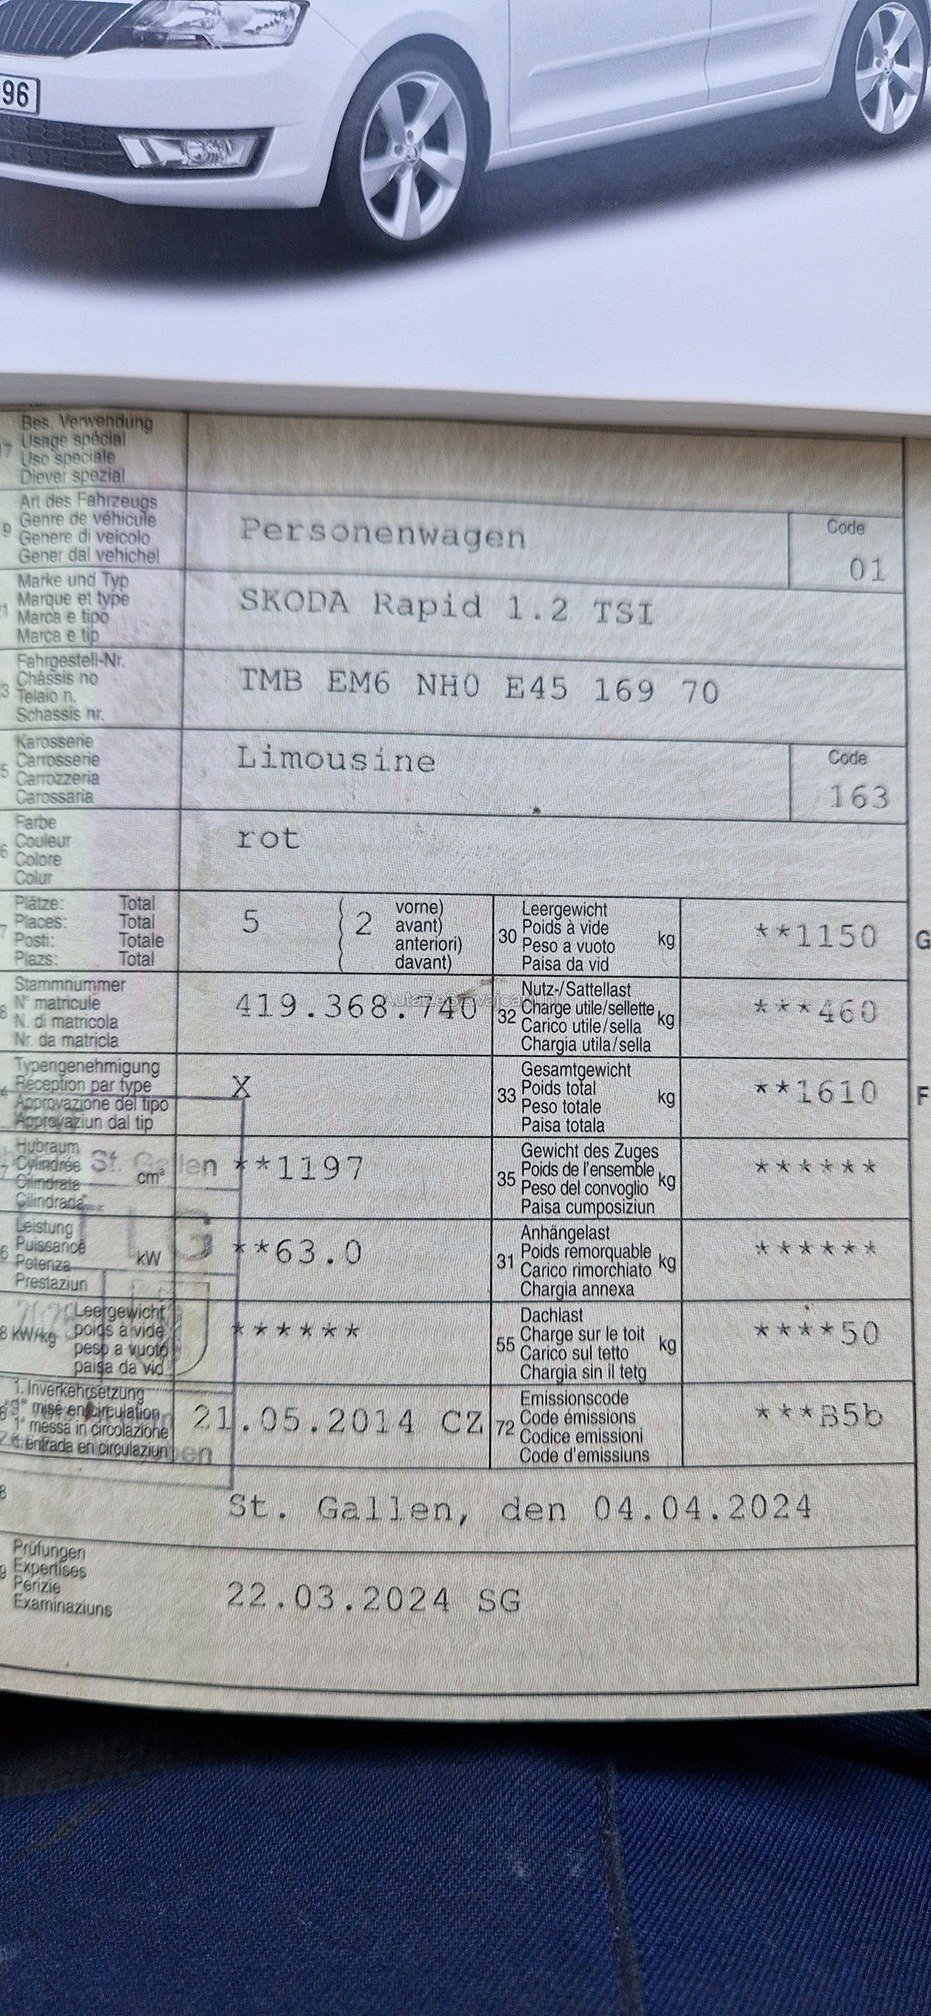 96
Bes. Verwendung
Usage spécial
Uso speciale
Diever spezial
Art des Fahrzeugs
Genre de véhicule
Genere di veicolo
Gener dal vehichel
Personenwagen
Code
01
Marke und Typ
Marque et type
Marca e tipo
Marca e tip
SKODA Rapid 1.2 TSI
Fahrgestell-Nr.
Châssis no
Telaio n.
Schassis nr.
TMB EM6 NH0 E45 169 70
Karosserie
Carrosserie
Carrozzeria
Carossaria
Limousine
Code
163
Farbe
Couleur
Colore
Colur
rot
Plätze: Total
Places: Total
Posti: Totale
Plazs: Total
5 ( 2 vorne)
avant)
anteriori)
davant)
30 Leergewicht
Poids à vide
Peso a vuoto kg
Paisa da vid
**1150
G
Stammnummer
N° matricule
N. di matricola
Nr. da matricla
419.368.740
32 Nutz-/Sattellast
Charge utile/sellette
Carico utile/sella kg
Chargia utila/sella
***460
Typengenehmigung
Réception par type
Approvazione del tipo
Approvaziun dal tip
X
33 Gesamtgewicht
Poids total
Peso totale kg
Paisa totala
**1610
F
Hubraum
Cylindrée
Cilindrata cm³
Cilindrada
St. Gallen
**1197
35 Gewicht des Zuges
Poids de l'ensemble
Peso del convoglio kg
Paisa cumposiziun
******
Leistung
Puissance
Potenza kW
Prestaziun
**63.0
31 Anhängelast
Poids remorquable
Carico rimorchiato kg
Chargia annexa
******
kW/kg Leergewicht
poids à vide
peso a vuoto
paisa da vid
******
55 Dachlast
Charge sur le toit
Carico sul tetto kg
Chargia sin il tetg
****50
1. Inverkehrsetzung
1re mise en circulation
1a messa in circolazione
1. entrada en circulaziun
21.05.2014 CZ
72 Emissionscode
Code émissions
Codice emissioni
Code d'emissiuns
***B5b
St. Gallen, den 04.04.2024
Prüfungen
Expertises
Perizie
Examinaziuns
22.03.2024 SG